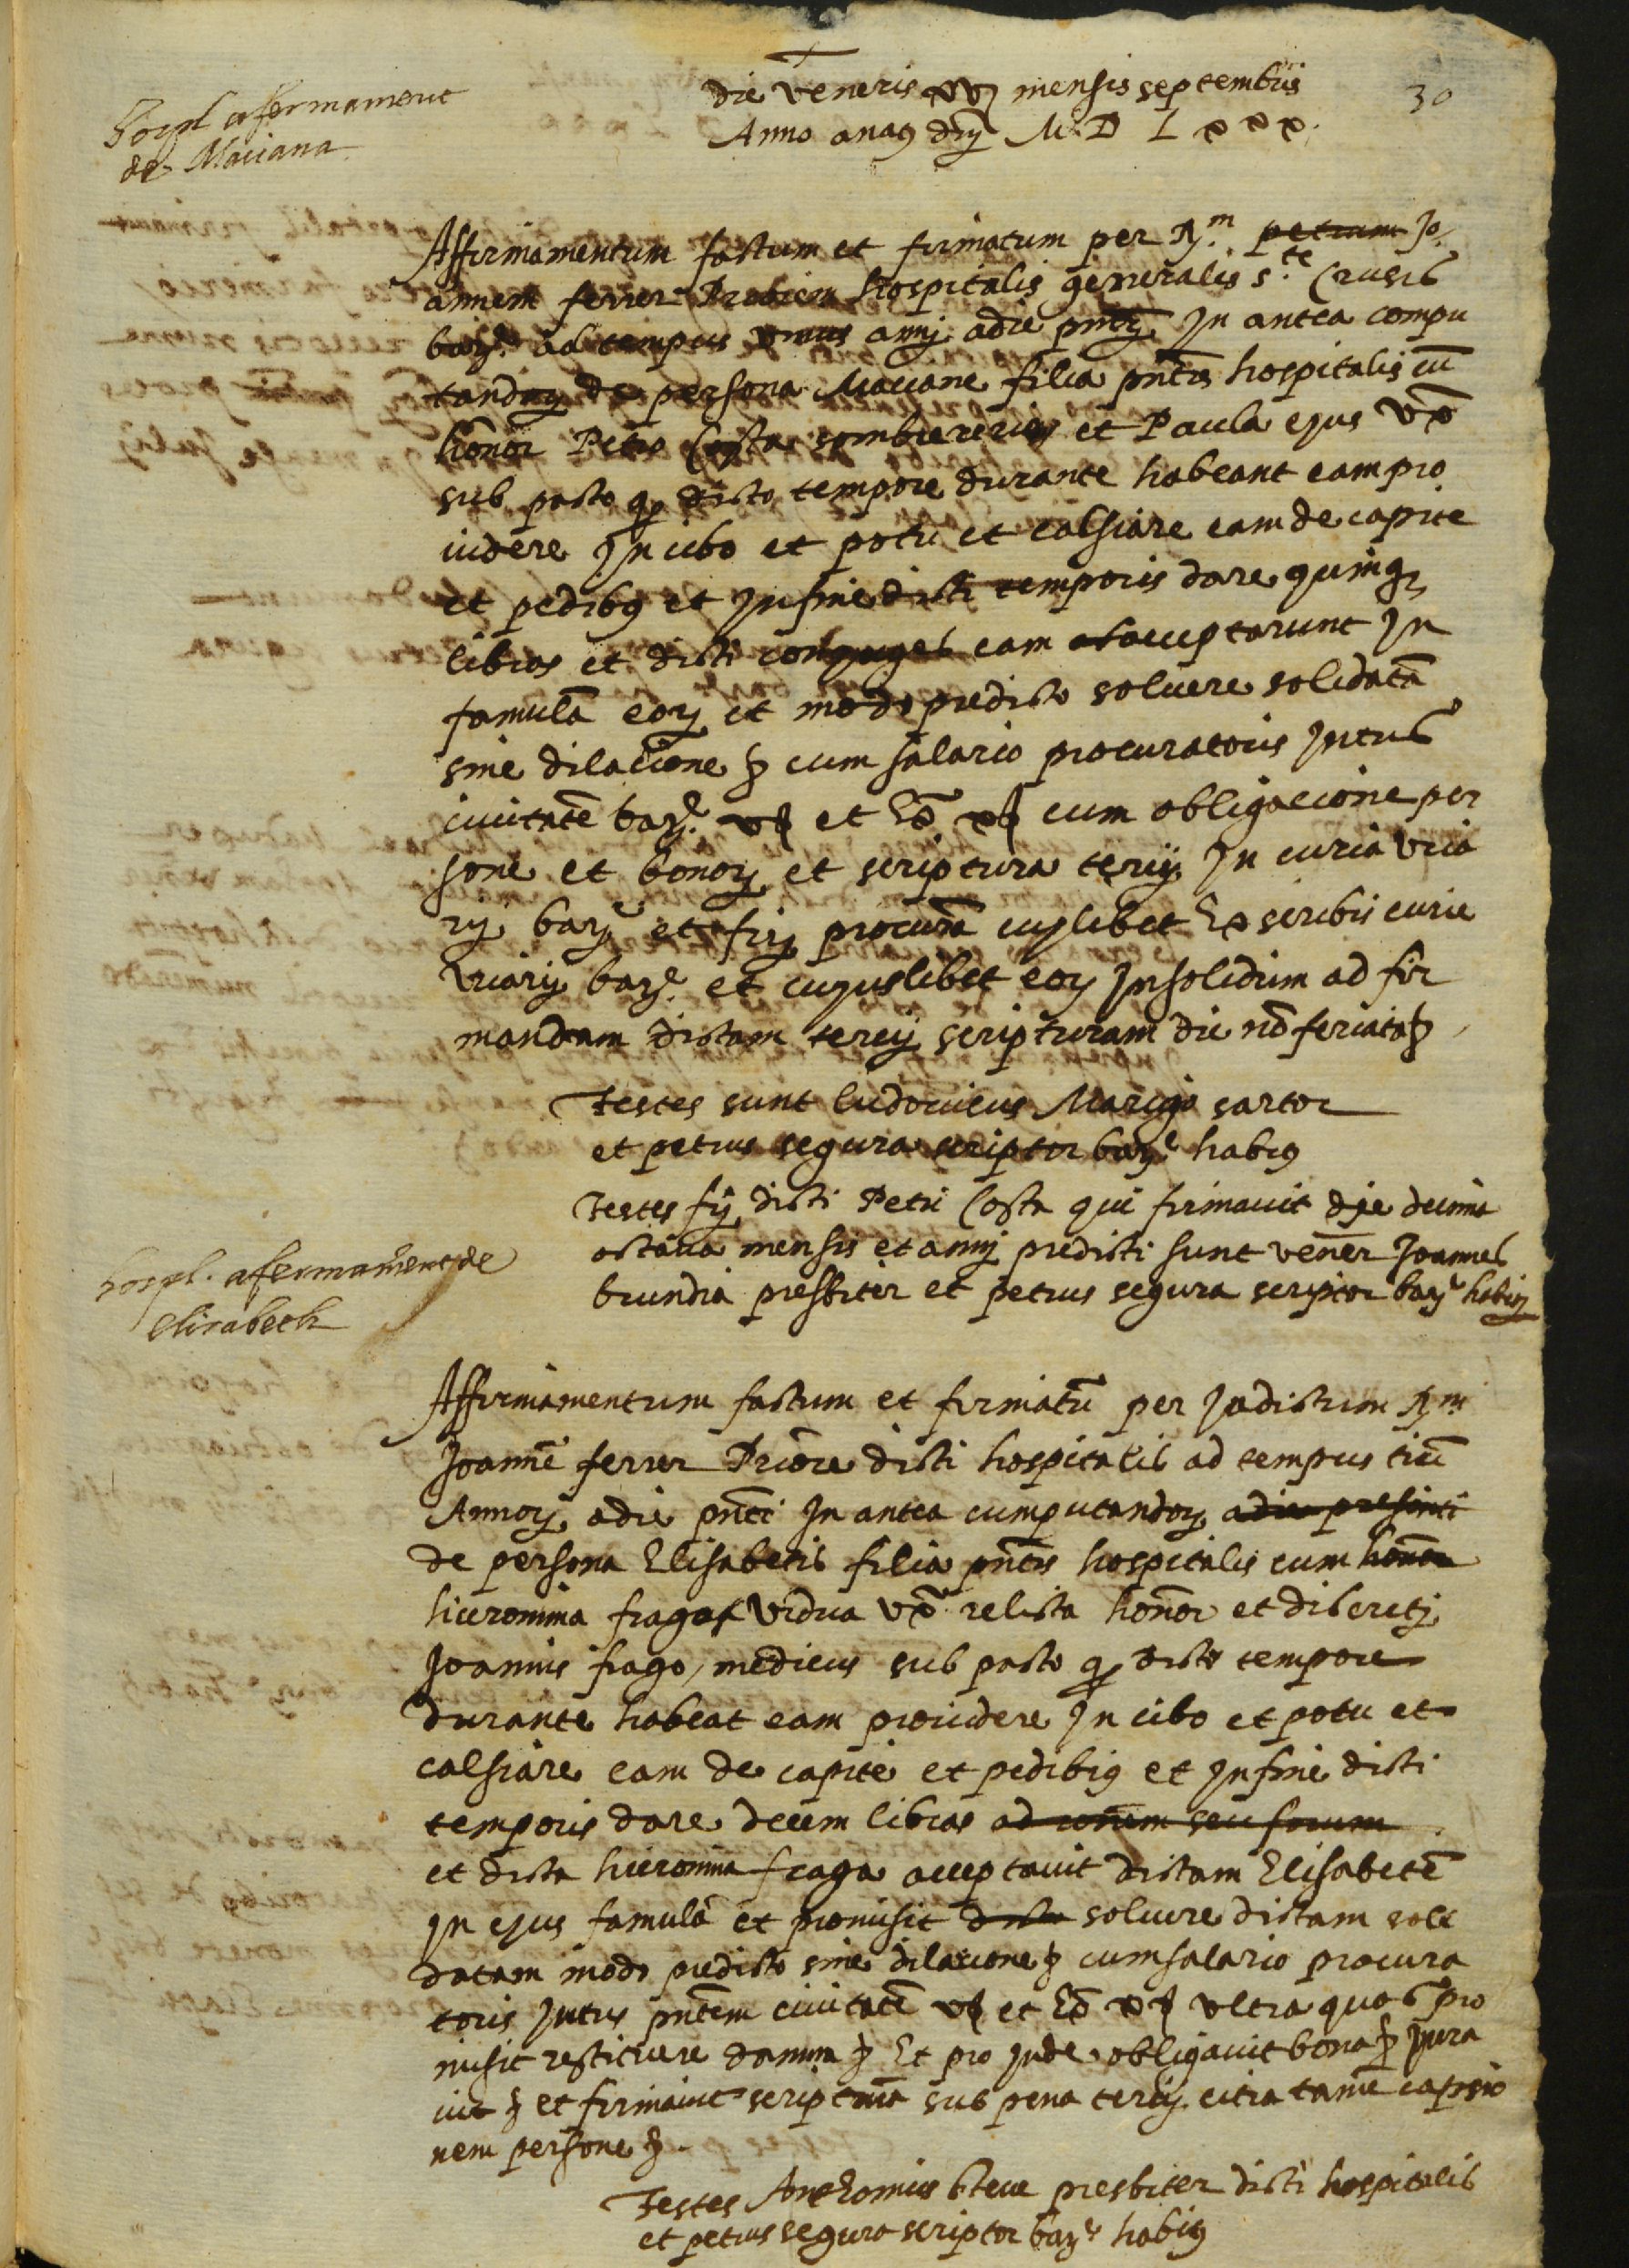 die Veneris xvj mensis septembris
Anno a nat dnj M D L x x x.
30
hospl afermament
de Maciana
Affirmamentum factum et firmatum per R.m petrum Jo
annem ferrer Priorem hospitalis generalis s.te Crucis
barne ad tempus unius annj adie pntj In antea compu
tandum de persona Maciane filia pntis hospitalis cu
honor Petro Costa sombrererius et Paula ejus vx
sub pacto q dicto tempore durante habeant eam pro
uidere In cibo et potu et calsiare eam de capite
et pedibus et In fine dicti temporis dare quinq
libras et dicti conjuges eam acceptarunt In
famula eor et modo predicto soluere solidata
sine dilacione cum salario procuratoris Intus
ciuitate barne v et Ex x cum obligacione per
sone et bonor et scriptura tercij In curia vica
rij barne et fir procura cujlibet Ex scribis curie
vicarij barne et cujuslibet eor Insolidum ad fir
mandam dictam tercij scripturam die no feriata
Testes sunt ludouicus Marigo sartor
et petrus segura scriptor barne habis
Testes fir dicti Petri Costa qui firmauit die decima
octaua mensis et annj predicti sunt vener Joannes
brundia presbiter et petrus segura scriptor barne habis
hospl. afermament de
Elisabeth
Affirmamentum factum et firmatu per Jadictum R.m
Joanne ferrer Priore dicti hospitalis ad tempus triu
Annor adie pnti In antea cumputandor adie presenti
de persona Elisabetis filia pntis hospitalis cum honor
hieronima fraga vidua vx relicta honor et discretj
Joannis frago, medicus sub pacto q dicto tempore
durante habeat eam prouidere In cibo et potu et
calsiare eam de capite et pedibus et In fine dicti
temporis dare decem libras ad seu forum
et dicta hieronima fraga acceptauit dictam Elisabete
In ejus famula et promisit dicta soluere dictam soli
datam modo predicto sine dilacione cum salario procura
toris Intus pntem ciuitate v et Ex x vltra quas pro
misit restituere damna Et pro Inde obligauit bona Jura
uit et firmauit scriptura sub pena tercij citra tame capsio
nem persone
Testes Anthonius Steue presbiter dicti hospitalis
et petrus segura scriptor barne habis